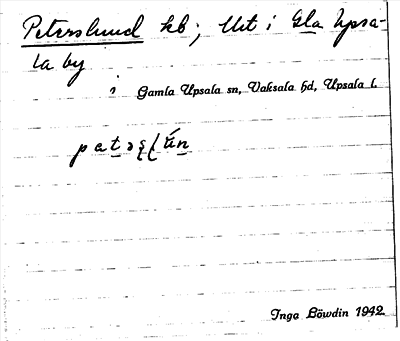 Peterslund kb; Utt i Gla Upsa-
la by
i Gamla Upsala sn, Vaksala hd, Upsala l.
Inga Löwdin 1942